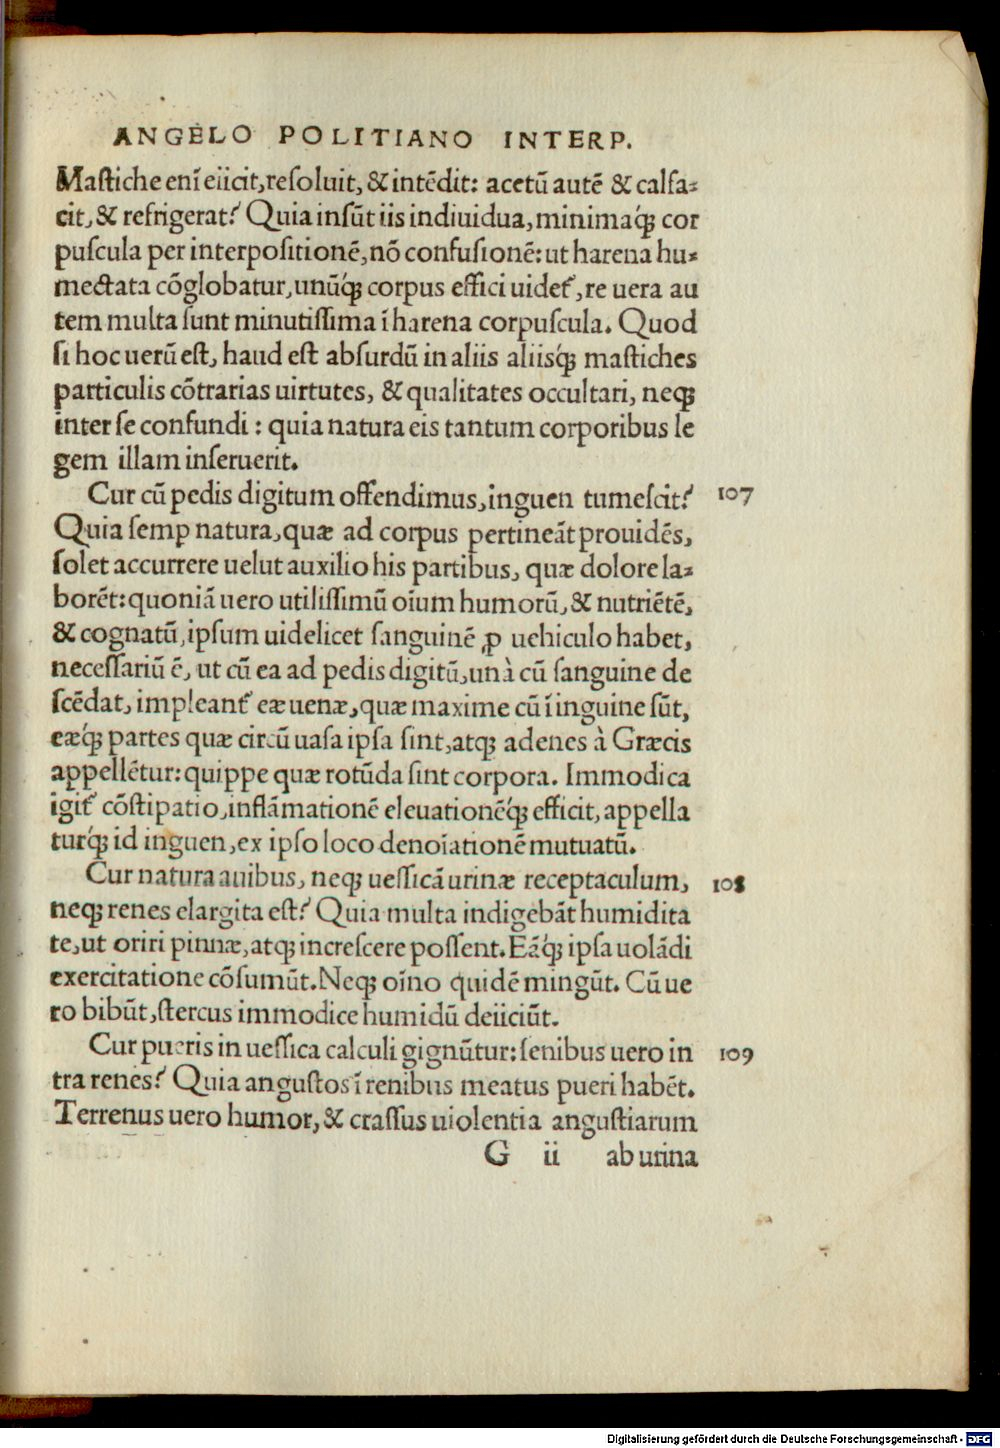 ANGELO POLITIANO INTERP.
Maſtiche enī eiicit, reſoluit, & intēdit: acetū autē & calfa⸗
cit, & refrigerat? Quia inſūt iis indiuidua, minimaq́ꝫ cor
puſcula per interpoſitionē, nō confuſionē: ut harena hu⸗
mectata cōglobatur, unūq́ꝫ corpus effici uidet᷑, re uera au
tem multa ſunt minutiſſima ī harena corpuſcula. Quod
ſi hoc uerū eſt, haud eſt abſurdū in aliis aliisq́ꝫ maſtiches
particulis cōtrarias uirtutes, & qualitates occultari, neqꝫ
inter ſe confundi : quia natura eis tantum corporibus le
gem illam inſeruerit.
Cur cū pedis digitum offendimus, inguen tumeſcit? 107
Quia ſemꝑ natura, quæ ad corpus pertineāt prouidēs,
ſolet accurrere uelut auxilio his partibus, quæ dolore la⸗
borēt: quoniā uero utiliſſimū oīum humorū, & nutriētē,
& cognatū, ipſum uidelicet ſanguinē ꝓ uehiculo habet,
neceſſariū ē, ut cū ea ad pedis digitū, unà cū ſanguine de
ſcēdat, impleant᷑ eæ uenæ, quæ maxime cū ī inguine ſūt,
eæq́ꝫ partes quæ circū uaſa ipſa ſint, atqꝫ adenes à Græcis
appellētur: quippe quæ rotūda ſint corpora. Immodica
igit᷑ cōſtipatio, inflāmationē eleuationēq́ꝫ efficit, appella
turq́ꝫ id inguen, ex ipſo loco denoīationē mutuatū.
Cur natura auibus, neqꝫ ueſſicā urinæ receptaculum, 108
neqꝫ renes elargita eſt? Quia multa indigebāt humidita
te, ut oriri pinnæ, atqꝫ increſcere poſſent. Eāq́ꝫ ipſa uolādi
exercitatione cōſumūt. Neqꝫ oīno quidē mingūt. Cū ue
ro bibūt, ſtercus immodice humidū deiiciūt.
Cur pueris in ueſſica calculi gignūtur: ſenibus uero in 109
tra renes? Quia anguſtos ī renibus meatus pueri habēt.
Terrenus uero humor, & craſſus uiolentia anguſtiarum
G ii ab urina
Digitalisierung gefördert durch die Deutsche Forschungsgemeinschaft - DFG